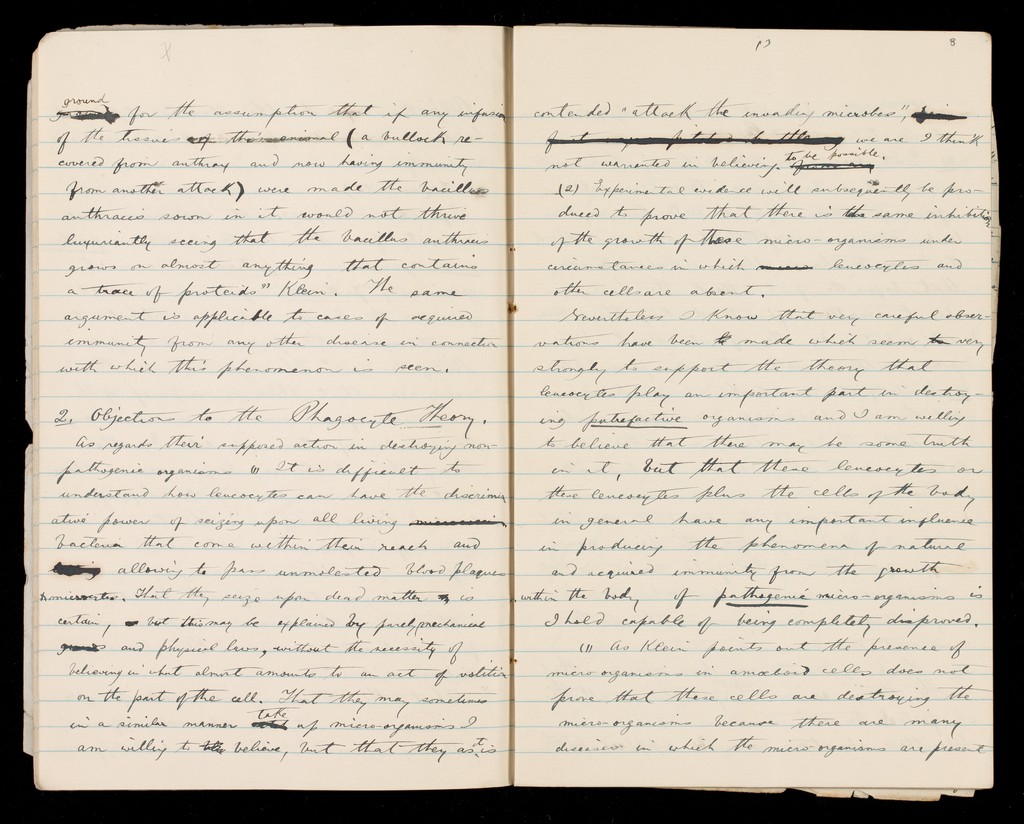 ground
for the assumption that if any infusion
of the tissues of this animal (a bullock re-
covered from anthrax and now having immunity
from another attack) were made the bacillus
anthracis sown in it would not thrive
luxuriantly seeing that the bacillus anthracis
grows on almost anything that contains
a trace of proteids" Klein. The same
argument is applicable to cases of acquired
immunity from any other disease in connection
with which this phenomenon is seen.
2. Objections to the Phagocyte Theory.
As regards their supposed action in destroying non-
pathogenic organisms (1) It is difficult to
understand how leucocytes can have the discrimin
ative power of seizing upon all living
bacteria that come within their reach and
allowing to pass unmolested blood plaques
& microcytes. That they seize upon dead matter is
certain, but this may be explained by purely mechanical
and physical laws, without the necessity of
believing in what almost amounts to an act of volition
on the part of the cell. That they may sometimes
in a similar manner take up micro-organisms I
am willing to believe, but that they as it is
8
contended "attack the invading microbes",
we are I think
not warranted in believing to be possible.
(2) Experimental evidence will subsequently be pro-
duced to prove that there is the same inhibition
of the growth of these micro-organisms under
circumstances in which leucocytes and
other cells are absent.
Nevertheless I know that very careful obser-
vations have been made which seem very
strongly to support the theory that
leucocytes play an important part in destroy-
ing putrefactive organisms and I am willing
to believe that there may be some truth
in it, but that these leucocytes or
these leucocytes plus the cells of the body
in general have any important influence
in producing the phenomena of natural
and acquired immunity from the growth
within the body of pathogenic micro-organisms is
I hold capable of being completely disproved.
(1) As Klein points out the presence of
micro organisms in amœboid cells does not
prove that those cells are destroying the
micro-organisms because there are many
diseases in which the micro organisms are present